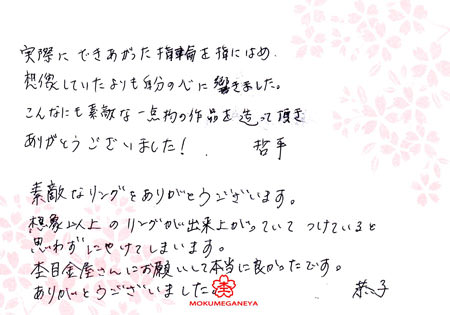 実際にできあがった指輪を指にはめ、
想像していたよりも自分の心に響きました。
こんなにも素敵な一点物の作品を造って頂き
ありがとうございました!
哲平
素敵なリングをありがとうございます。
想象以上のリングが出来上がっていてつけていると
思わずにやけてしまいます。
杢目金屋さんにお願いして本当に良かったです。
ありがとうございました。
恭子
杢
MOKUMEGANEYA